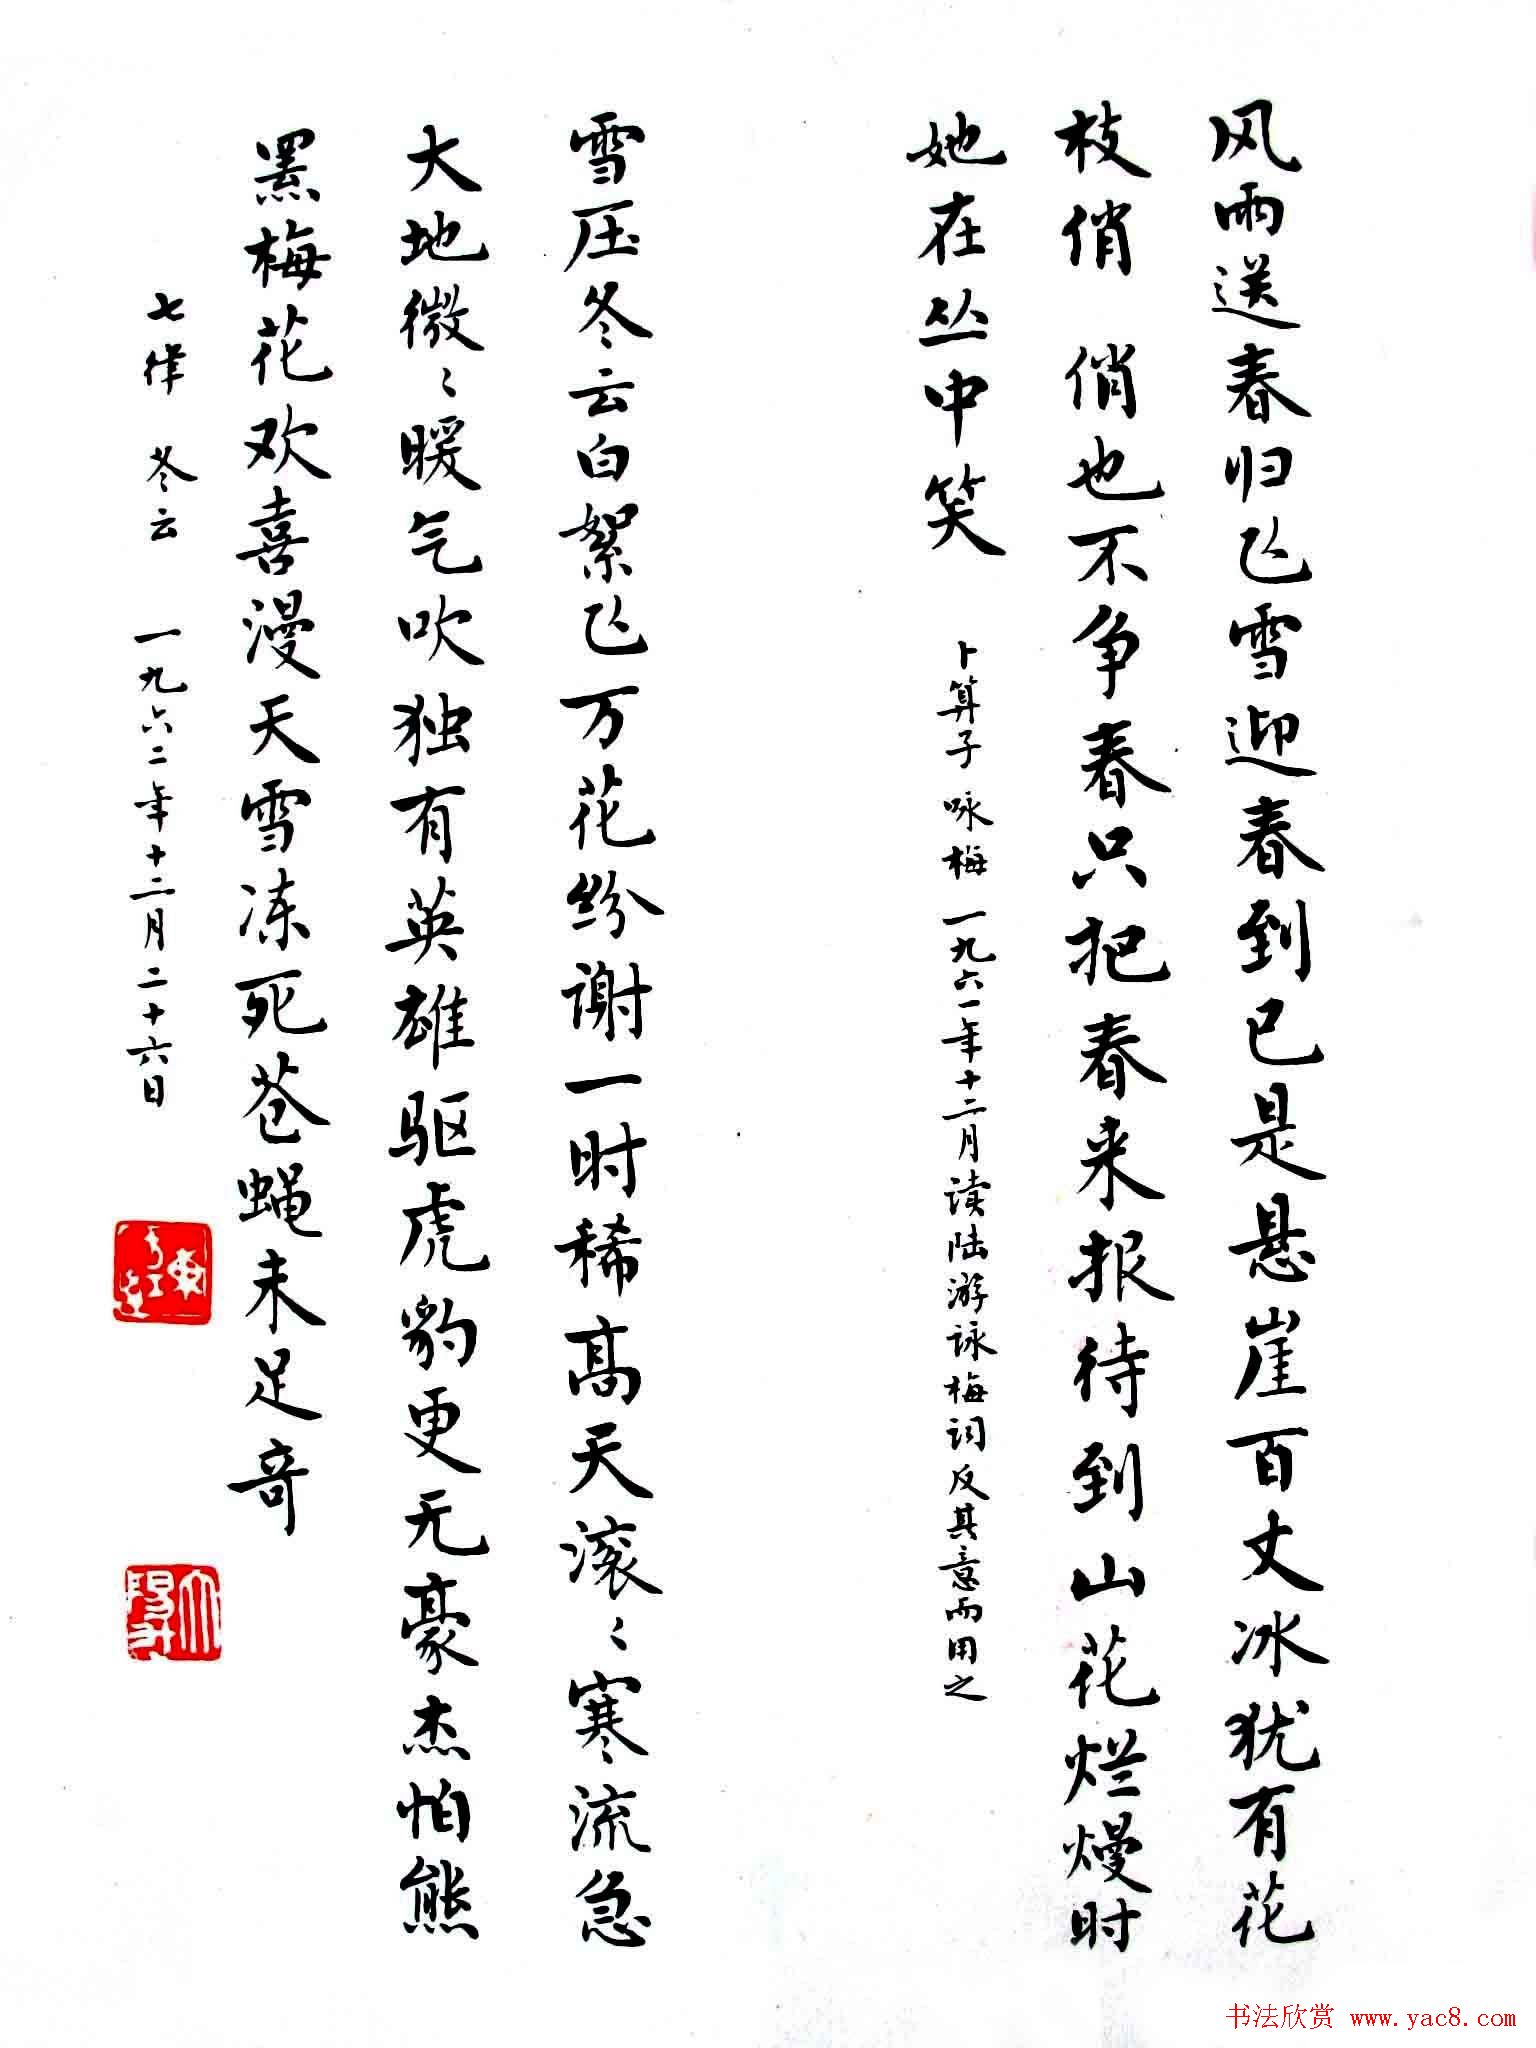 风雨送春归飞雪迎春到已是悬崖百丈冰犹有花
枝俏 俏也不争春只把春来报待到山花烂熳时
她在丛中笑 卜算子 咏梅 一九六一年十二月读陆游詠梅词反其意而用之
雪压冬云白絮飞万花纷谢一时稀高天滚〻寒流急
大地微〻暖气吹独有英雄驱虎豹更无豪杰怕熊
罴梅花欢喜漫天雪冻死苍蝇未足奇
七律 冬云 一九六二年十二月二十六日
书法欣赏 www.yac8.com